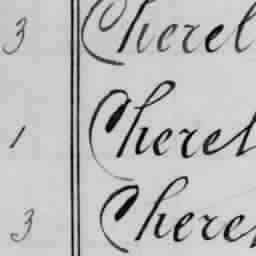 3 Cherel
1 Cheret
3 Cheret